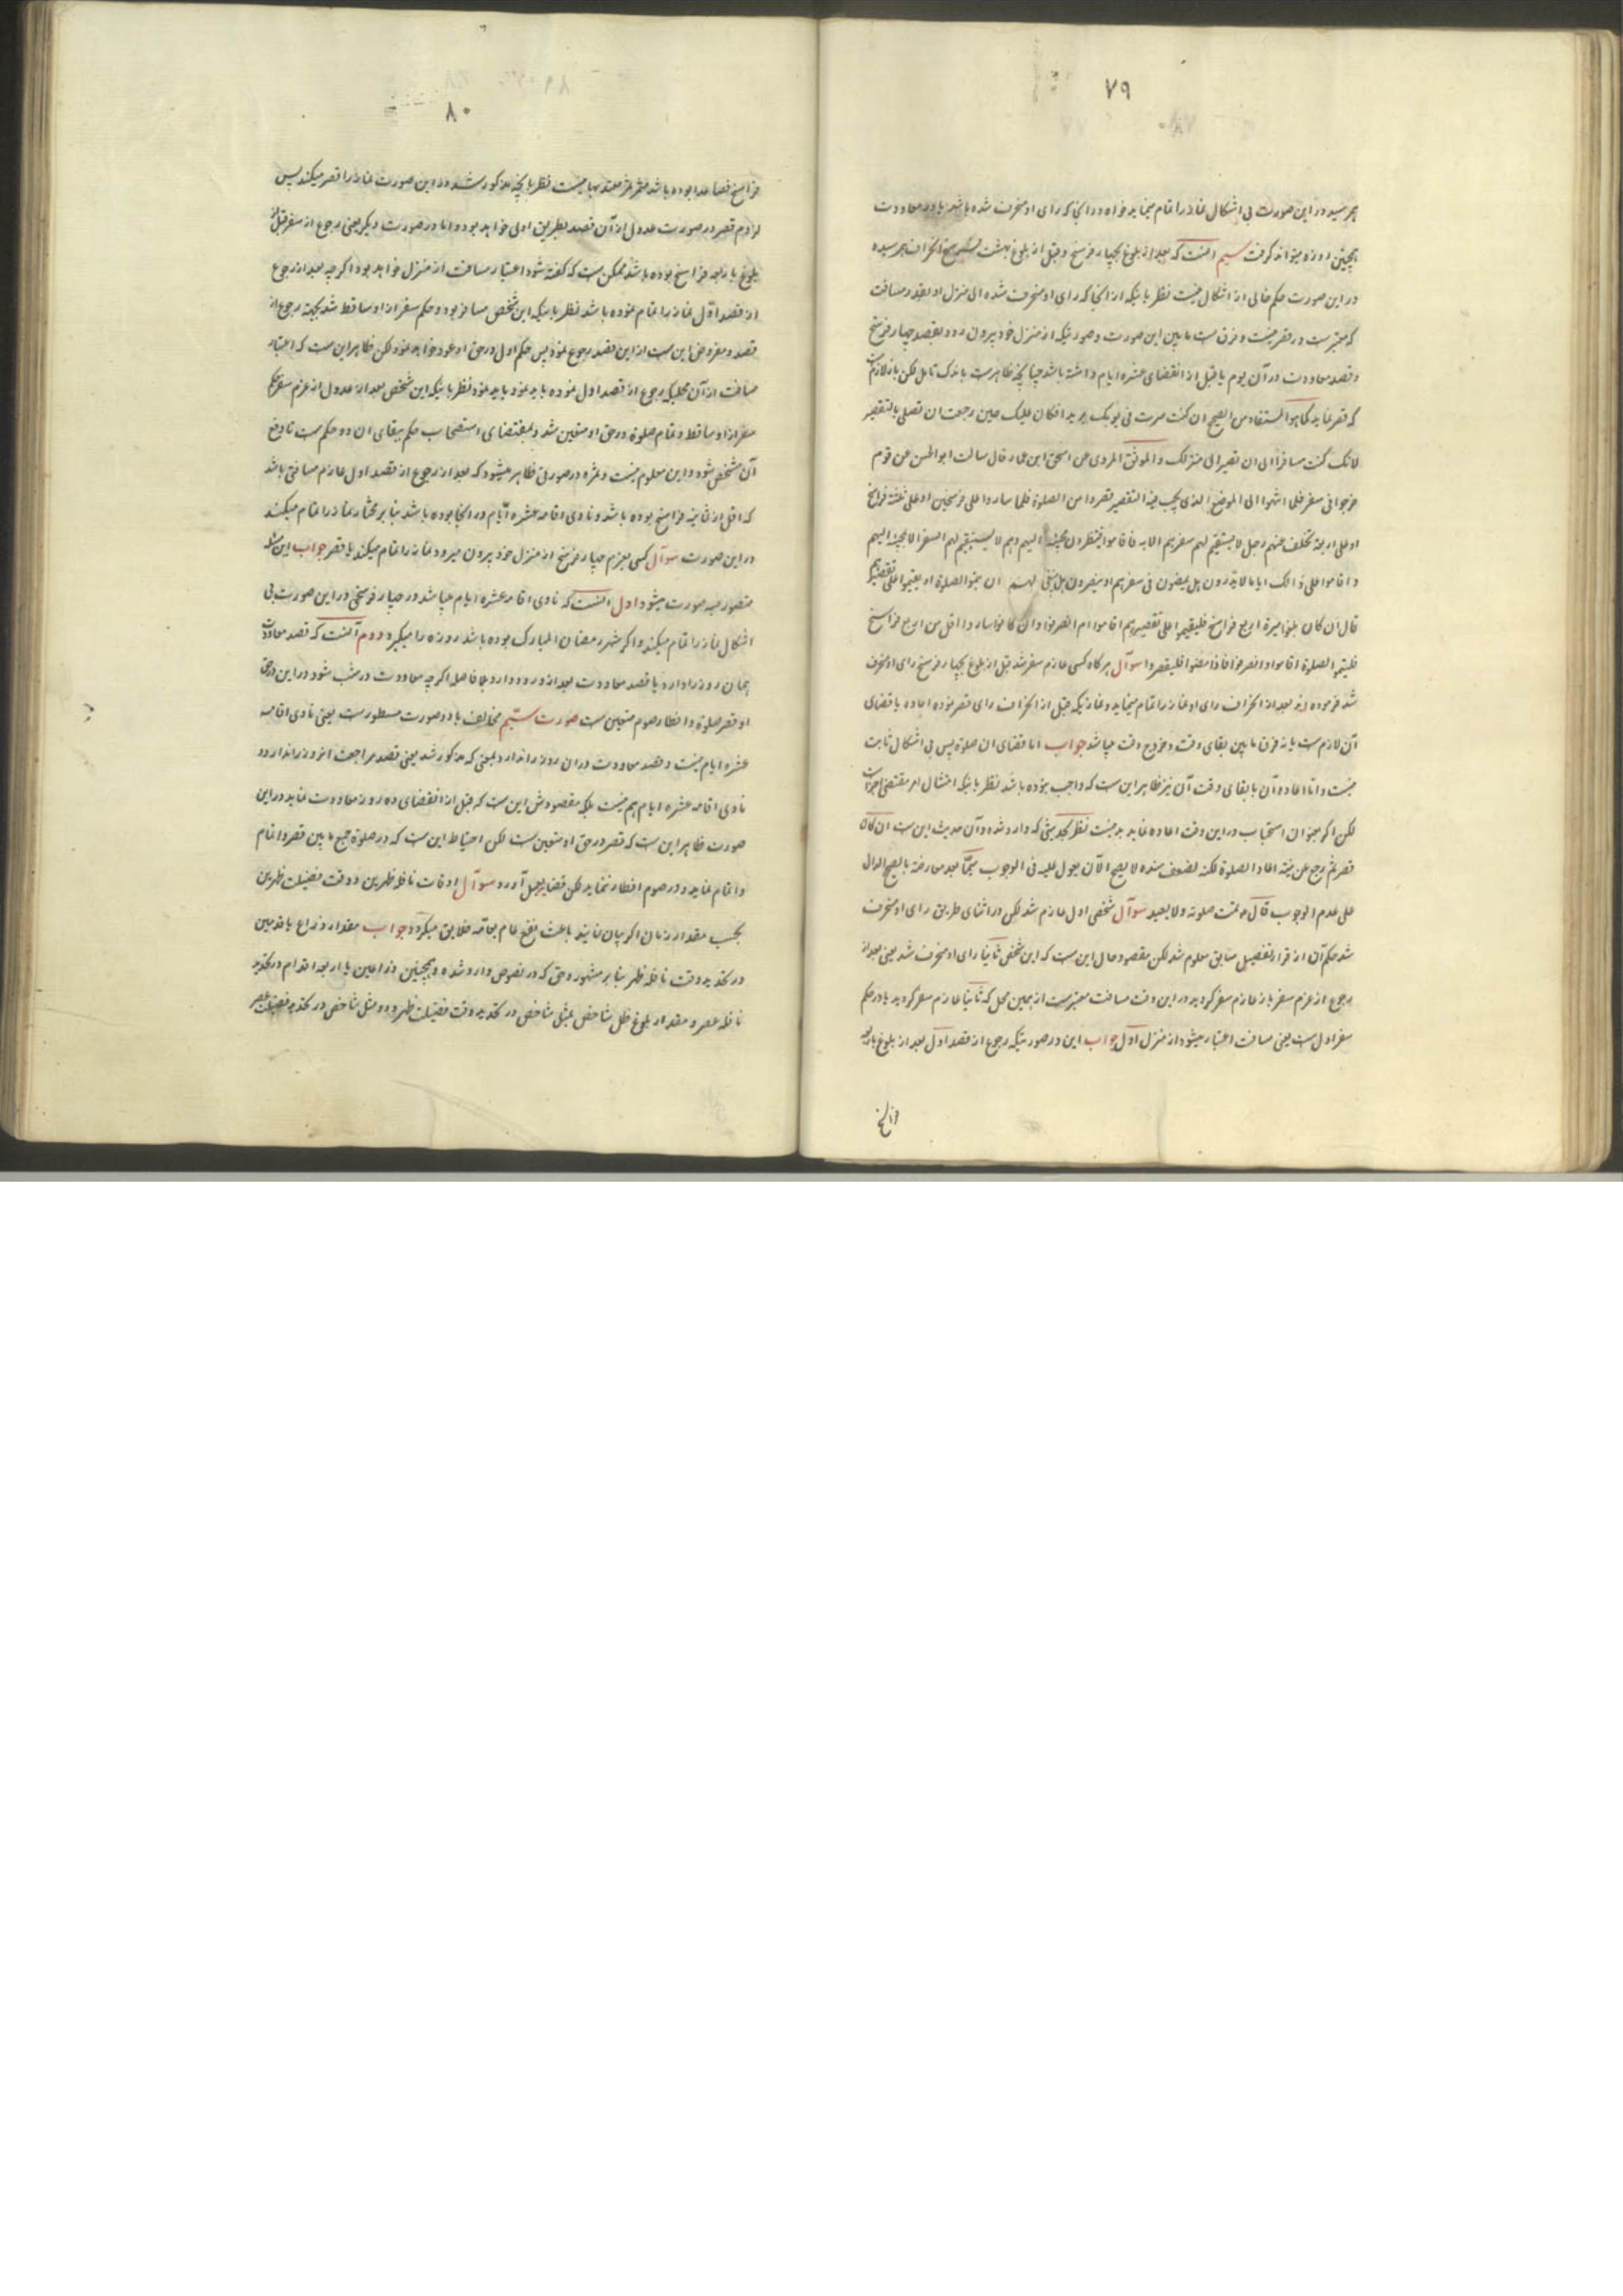 ٧٩
بهر سید در این صورت بی اشکال نماز را تمام مینماید خواه در انجا که رای او منحرف شده باشد یا در معاودت
همچنین روزه میتواند گرفت سیم انست که بعد از بلوغ بچهار فرسخ و قبل از بلوغ بهشت فرسخ انحراف بهم رسیده
در این صورت حکم خالی از اشکال نیست نظر باینکه از انجا که رای او منحرف شده الی منزل او بقدر مسافت
که معتبرست در قصر نیست و فرق ست ما بین این صورت و صورتیکه از منزل خود بیرون رود بقصد چهار فرسخ
و قصد معاودت در آن یوم یا قبل از انقضای عشره ایام داشته باشد چنانچه ظاهرست باندک تامل لکن باز لازمست
که قصر نماید کما هو المستفاد من الصحیح ان کنت سرت فی یومک بریدا فکان علیک حین رجعت ان تصلی بالتقصیر
لانک کنت مسافرا الی ان تصیر الی منزلک و الموثق المروی عن اسحق ابن عمار قال سالت ابو الحسن عن قوم
خرجوا فی سفر فلما انتهوا الی الموضع الذی یجب فیه التقصیر قصروا من الصلوة فلما ساروا علی فرسخین او علی ثلثة فراسخ
او علی اربعة تخلف عنهم رجل لا یستقیم لهم سفرهم الا به فاقاموا ینتظرون مجیئه الیهم وهم لا یستقیم لهم السفر الا بمجیئه الیهم
و اقاموا علی ذالک ایاما لا یدرون هل یمضون فی سفرهم او ینصرفون هل ینبغی لهم ان یتموا الصلوة او یقیموا علی تقصیرهم
قال ان کان بلغوا مسیرة اربع فراسخ فلیقیموا علی تقصیرهم اقاموا ام انصرفوا و ان کانوا ساروا اقل من اربع فراسخ
فلیتموا الصلوة اقاموا او انصرفوا فاذا مضوا فلیقصروا سوآل هر گاه کسی عازم سفر شد قبل از بلوغ بچهار فرسخ رای او منحرف
شد فرموده اند بعد از انحراف رای او نماز را تمام مینماید و نمازیکه قبل از انحراف رای قصر نموده اعاده یا قضای
آن لازم ست یا نه فرق ما بین بقای وقت و خروج وقت میباشد جواب اما قضای ان صلوة پس بی اشکال ثابت
نیست و اما اعاده آن با بقای وقت آن نیز ظاهر این ست که واجب نبوده باشد نظر باینکه امتثال امر مقتضی اجزاست
لکن اگر بعنوان استحباب در این وقت اعاده نماید بد نیست نظر بحدیثی که وارد شده و آن حدیث این ست ان کان
قصر ثم رجع عن نیته اعاد الصلوة لکنه لضعف سنده لا یصح الآن یعول علیه فی الوجوب سیما بعد معارضة بالصحیح الدال
علی عدم الوجوب قال ع تمت صلوته ولا یعید سوآل شخصی اول عازم شد لکن در اثنای طریق رای او منحرف
شد حکم آن از قرار تفصیل سابق معلوم شد لکن مقصود حال این ست که این شخص ثانیا رای او منحرف شد یعنی بعد از
رجوع از عزم سفر باز عازم سفر گردید در این وقت مسافت معتبرست از همین محل که ثانیا عازم سفر گردید یا در حکم
سفر اول ست یعنی مسافت اعتبار میشود از منزل اول جواب این در صورتیکه رجوع از قصد اول بعد از بلوغ باربعه
فراسخ
٨٠
فراسخ فصاعدا بوده باشد ثمره معتد بها نیست نظر بانچه مذکور شد در این صورت نماز را قصر میکند پس
لزوم قصر در صورت عدول از آن قصد بطریق اولی خواهد بود و اما در صورت دیگر یعنی رجوع از سفر قبل از
بلوغ باربعه فراسخ بوده باشد ممکن ست که گفته شود اعتبار مسافت از منزل خواهد بود اگر چه بعد از رجوع
از قصد اول نماز را تمام نموده باشد نظر باینکه این شخص مسافر بود و حکم سفر از او ساقط شد بجهة رجوع از
قصد و مفروض این ست از این قصد رجوع نمود پس حکم اول در حق او عود خواهد نمود لکن ظاهر این ست که اعتبار
مسافت از آن محلیکه رجوع از قصد اول نموده باید نمود نظر باینکه این شخص بعد از عدول از عزم سفر حکم
سفر از او ساقط و تمام صلوة در حق او متعین شد و بمقتضای استصحاب حکم ببقای ان دو حکم ست تا رفع
آن مشخص شود و این معلوم نیست و ثمره در صورتی ظاهر میشود که بعد از رجوع از قصد اول عازم مسافتی باشد
که اقل از ثمانیه فراسخ بوده باشد و ناوی اقامه عشره ایام در انجا بوده باشد بنا بر مختار نماز را تمام میکند
در این صورت سوآل کسی بعزم چهار فرسخ از منزل خود بیرون میرود نماز را تمام میکند یا قصر جواب این مسئله
متصور بسه صورت میشود اول انست که ناوی اقامه عشره ایام میباشد در چهار فرسخی در این صورت بی
اشکال نماز را تمام میکند و اگر شهر رمضان المبارک بوده باشد روزه را میگیرد دوم آنست که قصد معاودت
همان روز را دارد یا قصد معاودت بعد از ورود دارد بلا فاصله اگر چه معاودت در شب شود در این در حق
او قصر صلوة و افطار صوم متعین ست صورت سیم مخالف با دو صورت مسطورست یعنی ناوی اقامه
عشره ایام نیست و قصد معاودت در ان روز را ندارد بمعنی که مذکور شد یعنی قصد مراجعت انروز را ندارد و
ناوی اقامه عشره ایام هم نیست بلکه مقصودش این ست که قبل از انقضای ده روز معاودت نماید در این
صورت ظاهر این ست که قصر در حق او متعین ست لکن احتیاط این ست که در صلوة جمع ما بین قصر و اتمام
و اتمام نماید و در صوم افطار ننماید لکن قضا بعمل آورد سوآل اوقات نافله ظهرین و وقت فضیلت ظهرین
بحسب مقدار زمان اگر بیان نمایند باعث نفع عام بعامه خلایق میگردد جواب مقدار ذراع یا قدمین
در تحدید وقت نافله ظهر بنا بر مشهور و حق که در نصوص وارد شده و همچنین ذراعین یا اربعه اقدام در تحدید
نافله عصر و مقدار بلوغ ظل شاخص بمثل شاخص در تحدید وقت فضیلت ظهر و دو مثل شاخص در تحدید فضیلت عصر